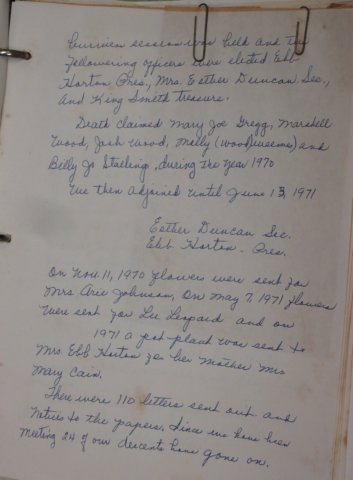 business session was held and the
following officers were elected Ebb
Horton Pres., Mrs. Esther Duncan Sec.,
and King Smith treasure.
Death claimed Mary Joe Gregg, Marshell
Wood, Josh Wood, Molly (Wood) Weems and
Billy Jo Stalings, during the year 1970
We then adjoined until June 13, 1971
Esther Duncan Sec.
Ebb Horton - Pres.
On Nov. 11, 1970 flowers were sent for
Mrs. Arie Johnson, On May 7, 1971 flowers
were sent for Lee Leopard and on
1971 a pot plant was sent to
Mrs. Ebb Horton for her Mother Mrs
Mary Cain.
There were 110 letters sent out and
notices to the papers. Since we have been
meeting 24 of our descents have gone on.